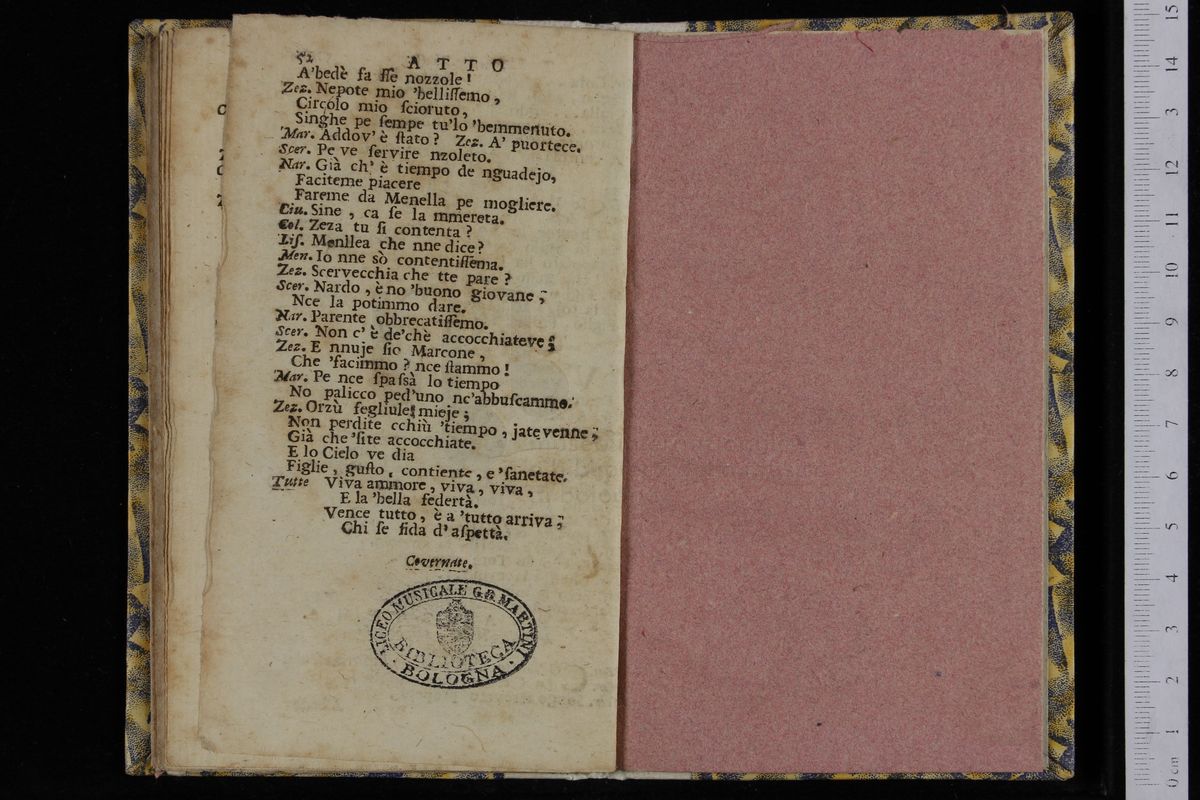 52 ATTO
A'bedè ſa ſſe nozzole!
Zez. Nepote mio 'belliſſemo,
Circolo mio ſcioruto,
Singhe pe ſempe tu'lo 'bemmenuto.
Mar. Addov' è ſtato? Zez. A' puortece.
Scer. Pe ve ſervire nzoleto.
Nar. Già ch' è tiempo de nguadejo,
Faciteme piacere
Fareme da Menella pe mogliere.
Ciu. Sine, ca ſe la mmereta.
Col. Zeza tu ſi contenta?
Liſ. Menllea che nne dice?
Men. Io nne sò contentiſſema.
Zez. Scervecchia che tte pare?
Scer. Nardo, è no 'buono giovane;
Nce la potimmo dare.
Nar. Parente obbrecatiſſemo.
Scer. Non c' è de'chè accocchiateve;
Zez. E nnuje ſio Marcone,
Che 'facimmo? nce ſtammo!
Mar. Pe nce ſpaſsà lo tiempo
No palicco ped'uno nc'abbuſcammo.
Zez. Orzù fegliule mieje;
Non perdite cchiù 'tiempo, jatevenne;
Già che 'ſite accocchiate.
E lo Cielo ve dia
Figlie, guſto, contiente, e 'ſanetate.
Tutte Viva ammore, viva, viva,
E la 'bella federtà.
Vence tutto, è a 'tutto arriva;
Chi ſe fida d' aſpettà.
Covernate.
LICEO MUSICALE G.B. MARTINI
BIBLIOTECA
· BOLOGNA ·
0 cm 1 2 3 4 5 6 7 8 9 10 11 12 13 14 15